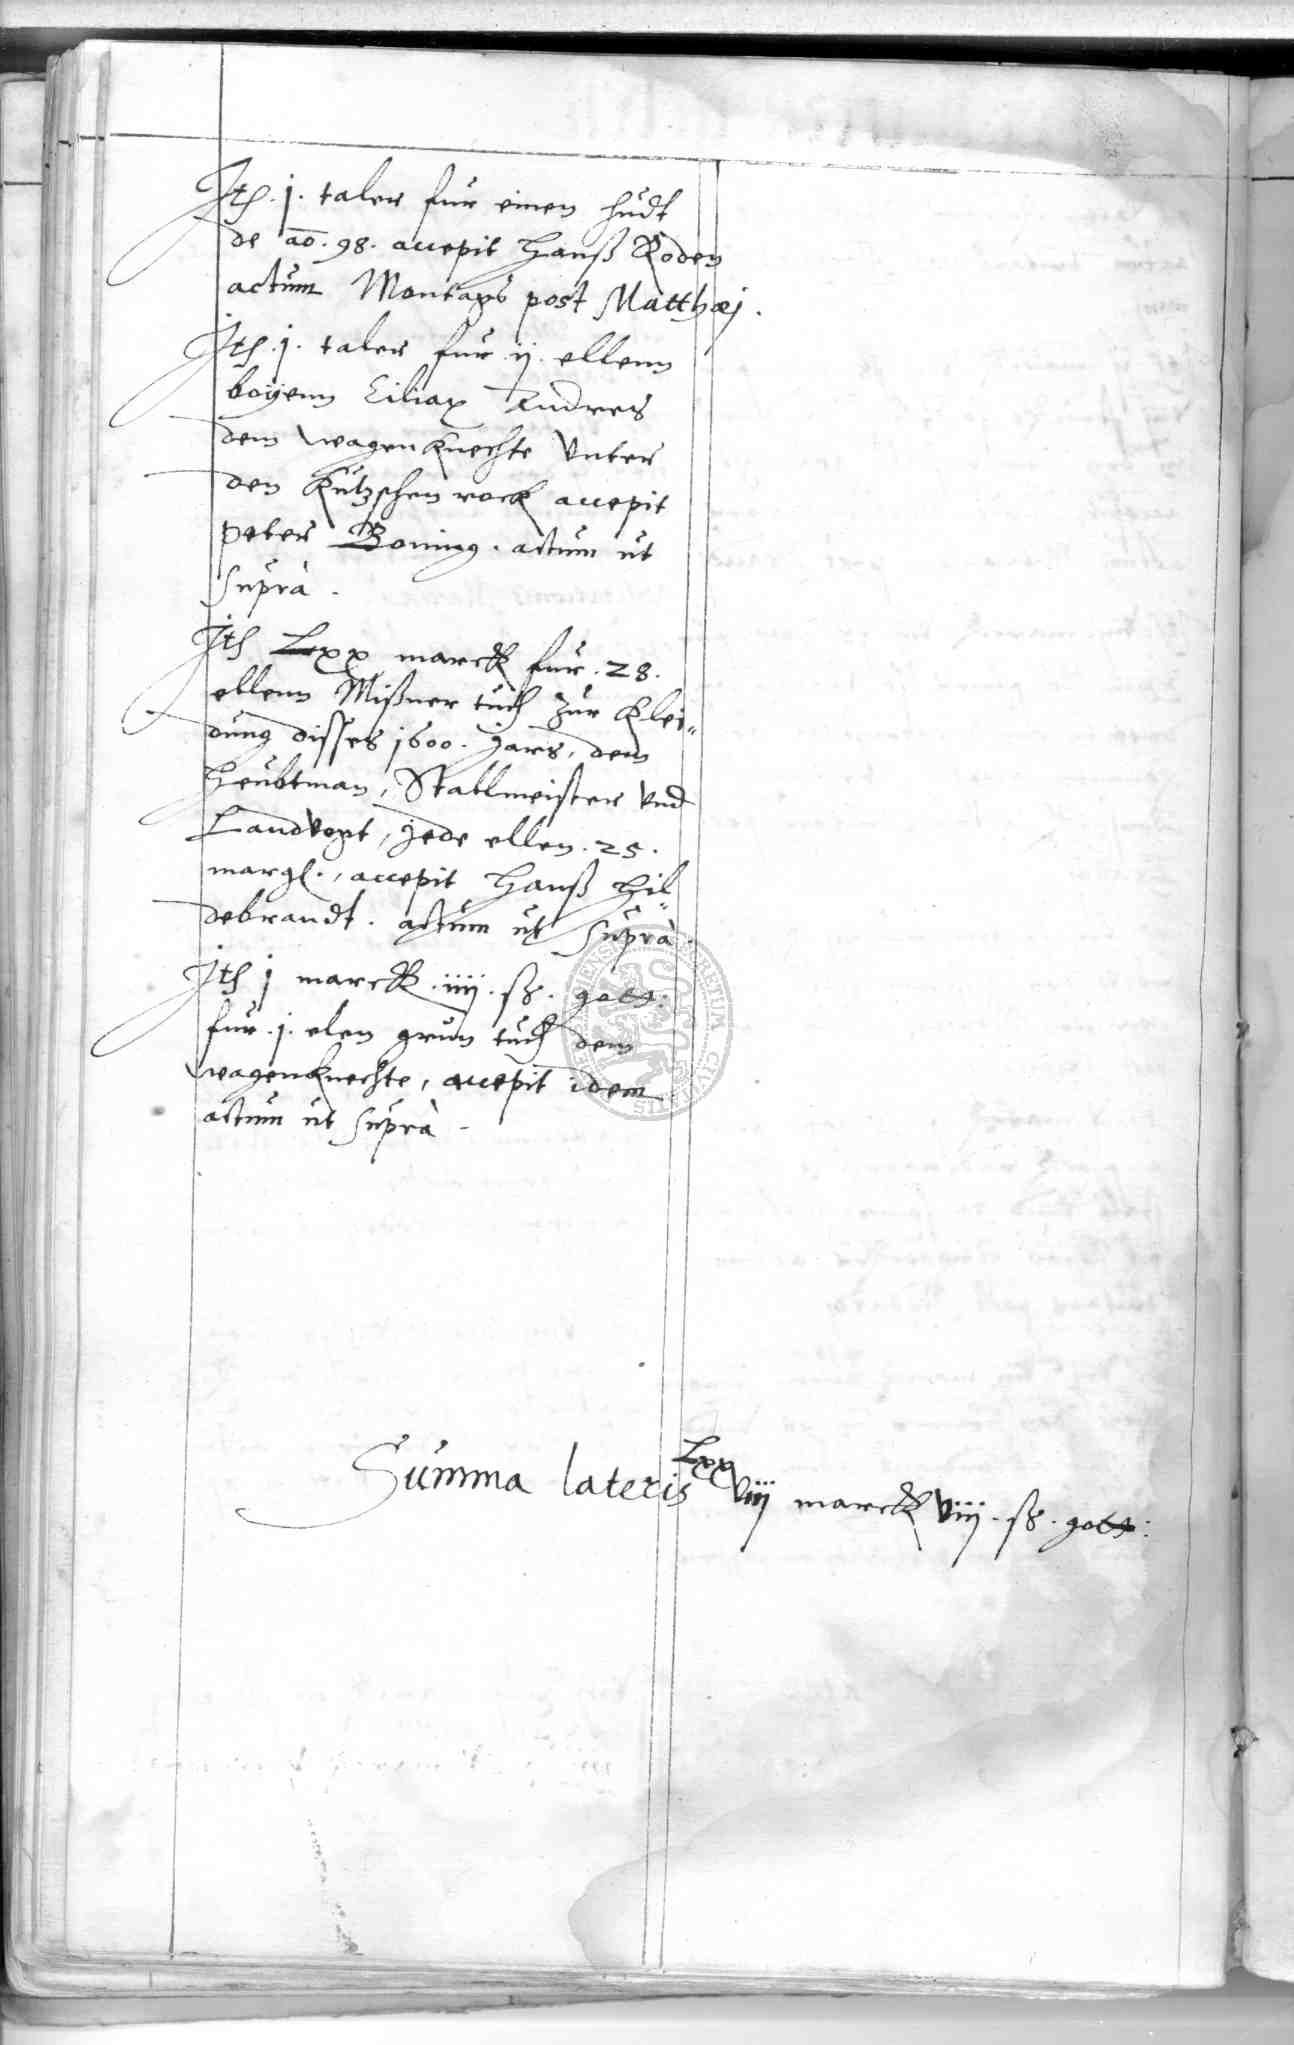 Jtem .j. taler fur einen hudt
de ao. 98. accepit Hanß Roden
actum Montags post Matthæj.
Jtem .j. taler fur .ij. ellenn
boyenn Ciliax Andres
dem wagenknechte vnter
den kutzschen rock accepit
peter Boning. actum ut
suprà.
Jtem Lxx marck fur .28.
ellenn Mißner tuch zur klei=
dung disses 1600. jars, dem
Heubtman, Stallmeister vnd
Landvogt, jede ellen .25.
margl., accepit Hanß Hil=
debrandt. actum ut supra.
Jtem j marck .iiij. ß. gosl:
fur .j. elen grun tuch dem
wagenknechte, accepit idem
actum ut suprà.
Summa lateris Lxxviij marck viij. ß. gosl: